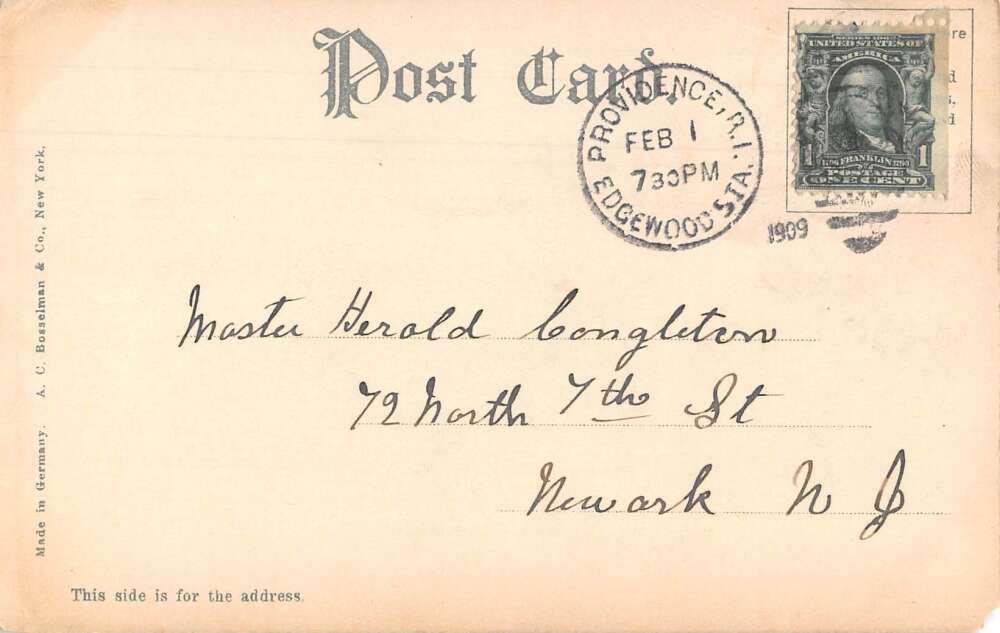 Post Card.
PROVIDENCE, R.I.
FEB 1
730PM
EDGEWOOD STA.
1909
SERIES 1902
UNITED STATES OF
AMERICA
1706 FRANKLIN 1790
1 1
POSTAGE
ONE CENT
re
d
s,
d
Master Herold Congleton
72 North 7th St
Newark N J
Made in Germany. A. C. Bosselman & Co., New York.
This side is for the address.